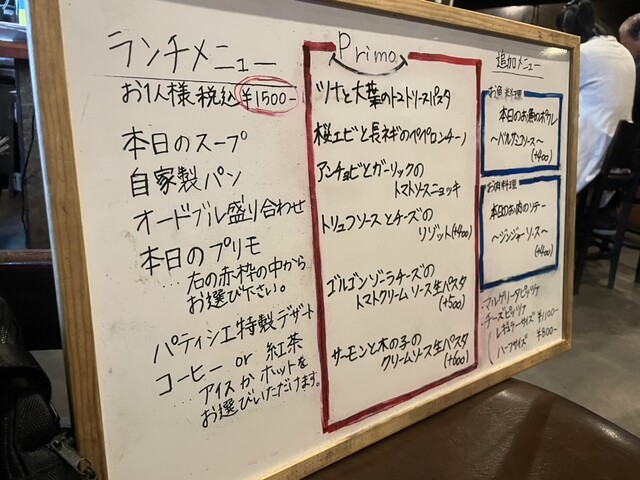 ランチメニュー
お1人様 税込 ¥1500-
本日のスープ
自家製パン
オードブル盛り合わせ
本日のプリモ
…右の赤枠の中から
お選び下さい。
パティシエ特製デザート
コーヒー or 紅茶
…アイスかホットを
お選びいただけます。
Primo
ツナと大葉のトマトソースパスタ
桜エビと長ネギのペペロンチーノ
アンチョビとガーリックの
トマトソースニョッキ
トリュフソースとチーズの
リゾット(+400)
ゴルゴンゾーラチーズの
トマトクリームソース生パスタ
(+500)
サーモンと木の子の
クリームソース生パスタ
(+600)
追加メニュー
お魚料理
本日のお魚のポワレ
~バルサミコソース~
(+400)
お肉料理
本日のお肉のソテー
~ジンジャーソース~
(+400)
・マルゲリータピッツァ
・チーズピッツァ
レギュラーサイズ ¥1100-
ハーフサイズ ¥800-